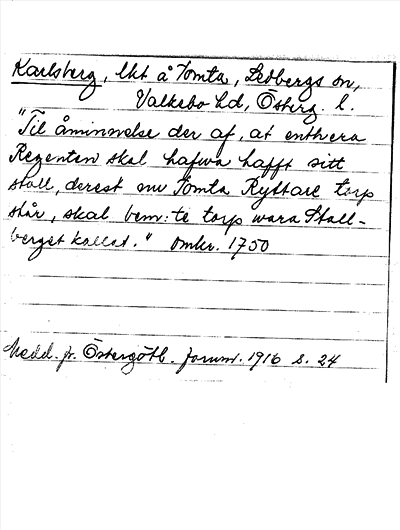 Karlsberg, lht å Tomta, Ledbergs sn,
Valkebo hd, Österg. l.
"Til åminnelse der af, at enthera
Regenten skal hafwa hafft sitt
stall, derest nu Tomta Ryttare torp
står, skal bem:te torp wara Stall-
berget kallat." omkr. 1750
Medd. fr. Östergötl. fornm. 1916 s. 24